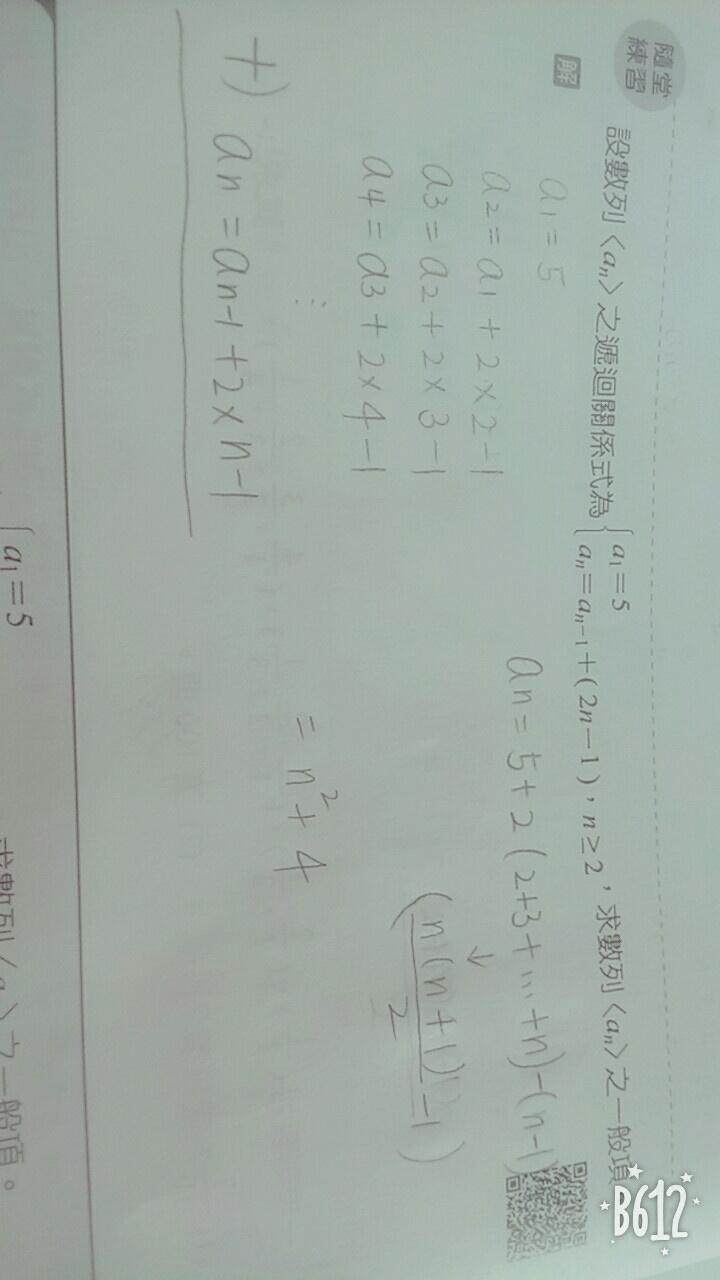 隨堂
練習
設數列〈aₙ〉之遞迴關係式為 { a₁=5
aₙ=aₙ₋₁+(2n−1),n≥2 ,求數列〈aₙ〉之一般項
解
a₁=5
a₂=a₁+2×2-1
a₃=a₂+2×3-1
a₄=a₃+2×4-1
⋮
+) an=an-1+2×n-1
an=5+2(2+3+...+n)-(n-1)
↓
(n(n+1)/2-1)
=n²+4
{ a₁=5
求數列〈a 〉之一般項。
B612